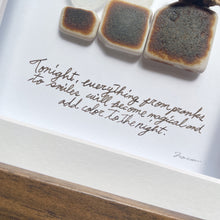 Tonight, everything from pranks
to smiles will become magical and
add color to the night.